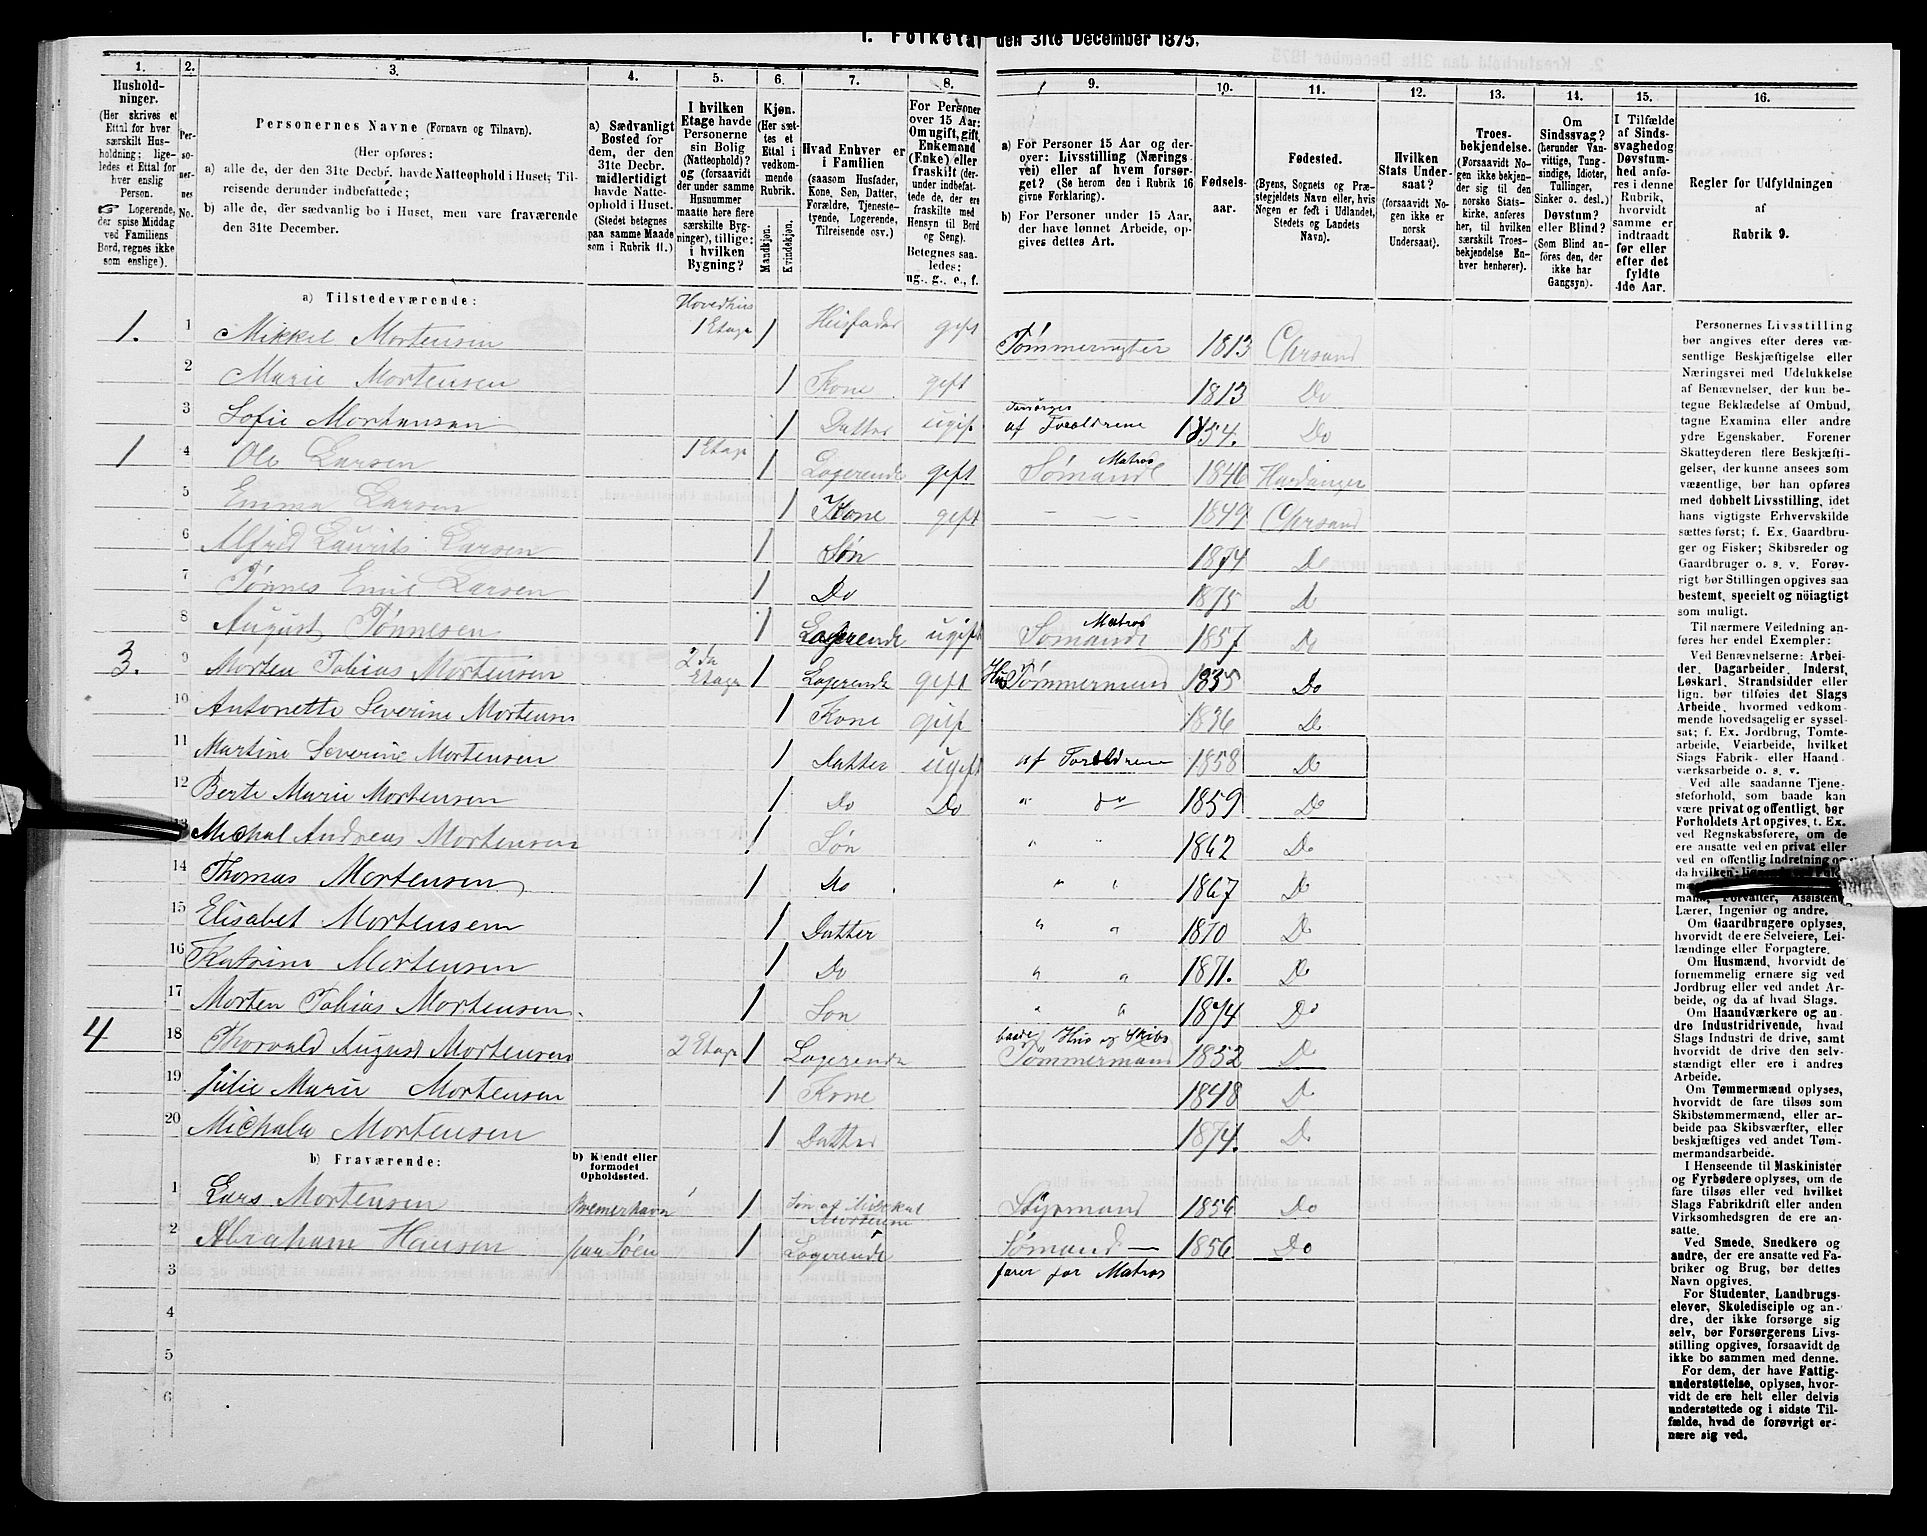 1. Folketal den 31te December 1875.
1. 2. 3. 4. 5. 6. 7. 8. 9. 10. 11. 12. 13. 14. 15. 16.
Hushold-
ninger.
(Her skrives et
Ettal for hver
særskilt Hus-
holdning; lige-
ledes et Ettal for
hver enslig
Person.
☞ Logerende,
der spise Middag
ved Familiens
Bord, regnes ikke
som enslige).
Per-
so-
ner-
nes
No.
Personernes Navne (Fornavn og Tilnavn).
(Her opføres:
a) alle de, der den 31te Decbr. havde Natteophold i Huset; Til-
reisende derunder indbefattede;
b) alle de, der sædvanlig bo i Huset, men vare fraværende
den 31te December.
a) Sædvanligt
Bosted for
dem, der den
31te Decbr.
midlertidigt
havde Natte-
ophold i Huset.
(Stedet betegnes
paa samme Maade
som i Rubrik 11.)
I hvilken
Etage havde
Personerne
sin Bolig
(Natteophold)?
og (forsaavidt
der under samme
Husnummer
maatte høre flere
særskilte Byg-
ninger), tillige:
i hvilken
Bygning?
Kjøn.
(Her sæt-
tes et
Ettal i
vedkom-
mende
Rubrik.
Mandkjøn.
Kvindekjøn.
Hvad Enhver er
i Familien
(saasom Husfader,
Kone, Søn, Datter,
Forældre, Tjeneste-
tyende, Logerende,
Tilreisende osv.)
For Personer
over 15 Aar:
Om ugift, gift,
Enkemand
(Enke) eller
fraskilt (der-
under indbefat-
tede de, der ere
fraskilte med
Hensyn til Bord
og Seng).
Betegnes saa-
ledes:
ug., g., e., f.
a) For Personer 15 Aar og der-
over: Livsstilling (Nærings-
vei) eller af hvem forsør-
get? (Se herom den i Rubrik 16
givne Forklaring.)
b) For Personer under 15 Aar,
der have lønnet Arbeide, op-
gives dettes Art.
Fødsels-
aar.
Fødested.
(Byens, Sognets og Præ-
stegjeldets Navn eller, hvis
Nogen er født i Udlandet,
Stedets og Landets
Navn).
Hvilken
Stats Under-
saat?
(forsaavidt No-
gen ikke er
norsk
Undersaat).
Troes-
bekjendelse.
(Forsaavidt No-
gen ikke bekjen-
der sig til den
norske Stats-
kirke, anføres
her, til hvilken
særskilt Troes-
bekjendelse En-
hver henhører).
Om
Sindssvag?
(herunder Van-
vittige, Tung-
sindige, Idioter,
Tullinger,
Sinker o. desl.)
Døvstum?
eller Blind?
(Som Blind an-
føres den, der
ikke har
Gangsyn).
I Tilfælde
af Sinds-
svaghed og
Døvstum-
hed anfø-
res i denne
Rubrik,
hvorvidt
samme er
indtraadt
før eller
efter det
fyldte
4de Aar.
Regler for Udfyldningen
af
Rubrik 9.
a) Tilstedeværende:
1. 1 Mikkel Mortensen Hovedhus 1 Etage 1 Husfader gift Tømmermester 1813 Chrsand
2 Marie Mortensen 1 Kone gift 1813 Do
3 Sofie Mortensen 1 Datter ugift forsørges af Forældrene 1854. Do
1 4 Ole Larsen 1 Etage 1 Logerende gift Sømand Matros 1846 Hardanger
5 Emma Larsen 1 Kone gift — — 1849 Chrsand
6 Alfred Laurits Larsen 1 Søn 1874 Do
7 Tønnes Emil Larsen 1 Do 1875 Do
8 August Tønnesen 1 Logerende ugift Sømand Matros 1857 Do
3. 9 Morten Tobias Mortensen 2da Etage 1 Logerende gift Hus Tømmermand 1835 Do
10 Antonette Severine Mortensen 1 Kone gift 1836 Do
11 Martine Severine Mortensen 1 Datter ugift af Forældrene 1858 Do
12 Berte Marie Mortensen 1 Do Do " do 1859 Do
13 Michal Andreas Mortensen 1 Søn " " 1862 Do
14 Thomas Mortensen 1 Do " " 1867 Do
15 Elisabet Mortensen 1 Datter " " 1870 Do
16 Katrine Mortensen 1 Do " " 1871. Do
17 Morten Tobias Mortensen 1 Søn " " 1874 Do
4 18 Thorvald August Mortensen 2 Etage 1 Logerende baade Hus og Skibs Tømmermand 1852 Do
19 Julie Marie Mortensen 1 Kone 1848 Do
20 Michala Mortensen 1 Datter 1874. Do
b) Fraværende:
b) Kjendt eller
formodet
Opholdssted.
1 Lars Mortensen Bremerhavn 1 Søn af Mikkal Mortensen Styrmand 1856 Do
2 Abraham Hansen paa Søen 1 Logerende Sømand — farer for Matros 1856 Do
3
4
5
6
Personernes Livsstilling
bør angives efter deres væ-
sentlige Beskjæftigelse eller
Næringsvei med Udelukkelse
af Benævnelser, der kun be-
tegne Beklædelse af Ombud,
tagne Examina eller andre
ydre Egenskaber. Forener
Skatteyderen flere Beskjæfti-
gelser, der kunne ansees som
væsentlige, bør han opføres
med dobbelt Livsstilling, idet
hans vigtigste Erhvervskilde
sættes først; f. Ex. Gaardbru-
ger og Fisker; Skibsreder og
Gaardbruger o. s. v. Forøv-
rigt bør Stillingen opgives saa
bestemt, specielt og nöiagtigt
som muligt.
Til nærmere Veiledning an-
føres her endel Exempler:
Ved Benævnelserne: Arbei-
der, Dagarbeider, Inderst,
Løskarl, Strandsidder eller
lign. bør tilføies det Slags
Arbeide, hvormed vedkom-
mende hovedsagelig er syssel-
sat; f. Ex. Jordbrug, Tomte-
arbeide, Veiarbeide, hvilket
Slags Fabrik- eller Haand
værksarbeide o. s. v.
Ved alle saadanne Tjene-
steforhold, som baade kan
være privat og offentligt, bør
Forholdets Art opgives, f. Ex.
ved Regnskabsførere, om de
ere ansatte ved en privat eller
ved en offentlig Indretning og
da hvilken;
mand, Forvalter, Assistent,
Lærer, Ingeniør og andre.
Om Gaardbrugere oplyses,
hvorvidt de ere Selveiere, Lei-
lændinge eller Forpagtere.
Om Husmænd, hvorvidt de
fornemmelig ernære sig ved
Jordbrug eller ved andet Ar-
beide, og da af hvad Slags.
Om Haandværkere og an-
dre Industridrivende, hvad
Slags Industri de drive, samt
hvorvidt de drive den selv-
stændigt eller ere i andres
Arbeide.
Om Tømmermænd oplyses,
hvorvidt de fare tilsøs som
Skibstømmermænd, eller ar-
beide paa Skibsværfter, eller
beskjæftiges ved andet Tøm-
mermandsarbeide.
I Henseende til Maskinister
og Fyrbødere oplyses, om de
fare tilsøs eller ved hvilket
Slags Fabrikdrift eller anden
Virksomhedsgren de ere an-
satte.
Ved Smede, Snedkere og
andre, der ere ansatte ved Fa-
briker og Brug, bør dettes
Navn opgives.
For Studenter, Landbrugs-
elever, Skoledisciple og an-
dre, der ikke forsørge sig
selv, bør Forsørgerens Livs-
stilling opgives, forsaavidt de
ikke bo sammen med denne.
For dem, der have Fattig-
understøttelse, oplyses, hvor-
vidt de ere helt eller delvis
understøttede og i sidste Til-
fælde, hvad de forøvrigt er-
nære sig ved.